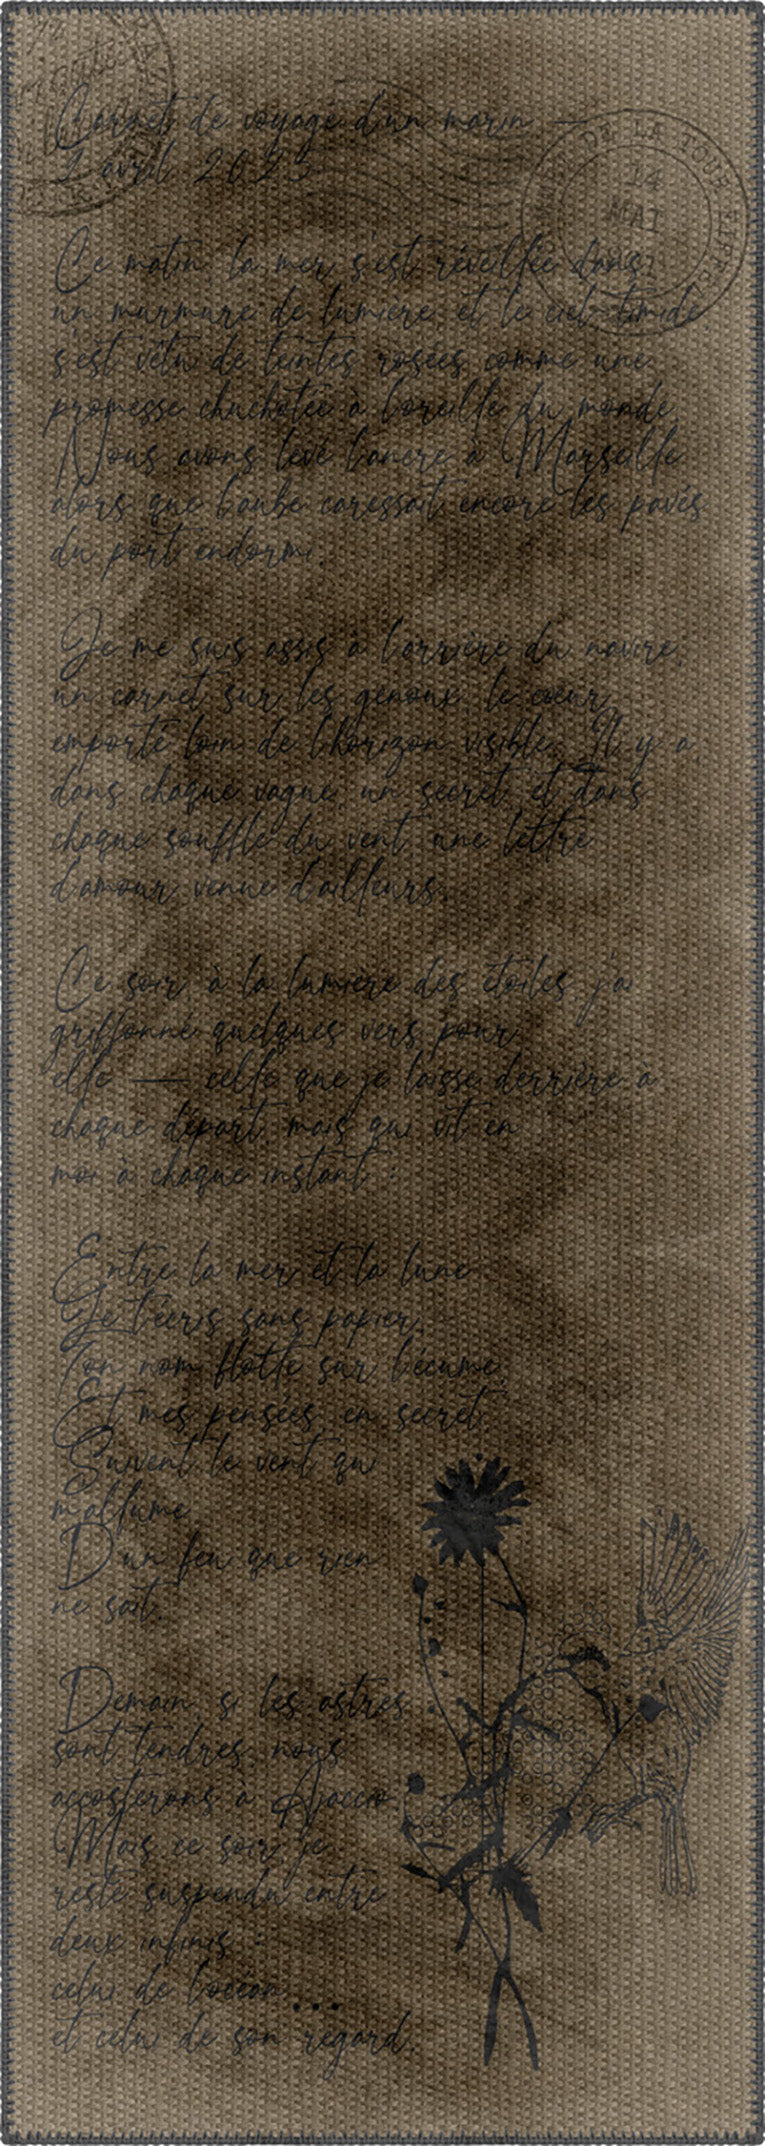 Carnet de voyage d'un marin —
1 avril 2025
DE LA TOUR EIFFEL
14
MAI
Ce matin, la mer s'est réveillée dans
un murmure de lumière, et le ciel timide
s'est vêtu de teintes rosées comme une
promesse chuchotée à l'oreille du monde.
Nous avons levé l'ancre à Marseille
alors que l'aube caressait encore les pavés
du port endormi.
Je me suis assis à l'arrière du navire,
un carnet sur les genoux, le cœur
emporté loin de l'horizon visible. Il y a,
dans chaque vague, un secret, et dans
chaque souffle du vent, une lettre
d'amour venue d'ailleurs.
Ce soir, à la lumière des étoiles, j'ai
griffonné quelques vers pour
elle — celle que je laisse derrière à
chaque départ, mais qui vit en
moi à chaque instant :
Entre la mer et la lune
Je t'écris sans papier,
Ton nom flotte sur l'écume,
Et mes pensées, en secret,
Suivent le vent qui
m'allume
D'un feu que rien
ne sait.
Demain, si les astres
sont tendres, nous
accosterons à Ajaccio.
Mais ce soir, je
reste suspendu entre
deux infinis :
celui de l'océan...
et celui de son regard.